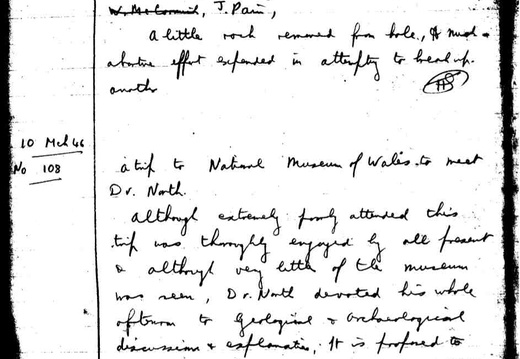 W. McCormick, J. Pain,
A little rock removed from hole, & much
abortive effort expended in attempting to break up
another
10 Mch 46
No 108
A trip to National Museum of Wales to meet
Dr. North.
Although extremely poorly attended this
trip was thoroughly enjoyed by all present
& although very little of the museum
was seen, Dr. North devoted his whole
afternoon to Geological & Archaeological
discussions & explanations. It is proposed to